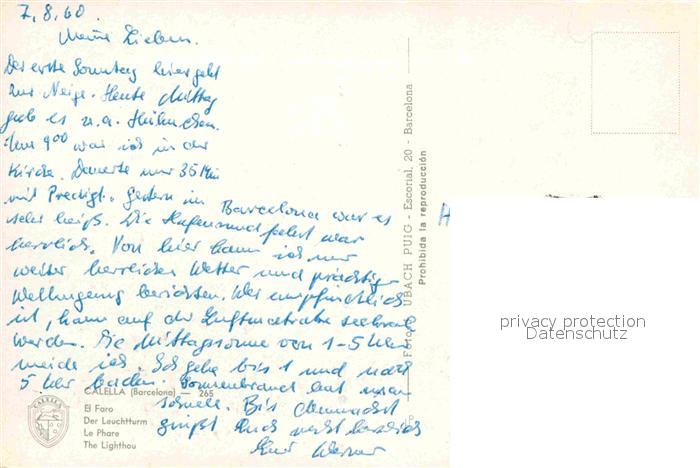 7.8.60.
Meine Lieben.
Der erste Sonntag hier geht
zur Neige. Heute Mittag
gab es u.a. Hühnchen.
Um 9⁰⁰ war ich in der
Kirche. Dauerte nur 35 Min
mit Predigt. Gestern in Barcelona war es
sehr heiß. Die Hafenrundfahrt war
herrlich. Von hier kann ich nur
weiter herrlichen Wetter und prächtiger
Wellengang berichten. Wer empfindlich
ist, kann auf der Luftmatratze seekrank
werden. Die Mittagssonne von 1-5 Uhr
meide ich. Ich gehe bis 1 und nach
5 Uhr baden. Sonnenbrand hat man
schnell. Bis demnächst
grüßt Euch recht herzlich
Euer Werner
CALELLA (Barcelona) — 265
El Faro
Der Leuchtturm
Le Phare
The Lighthou
CALELLA
Foto UBACH PUIG - Escorial, 20 - Barcelona
Prohibida la reproducción
privacy protection
Datenschutz